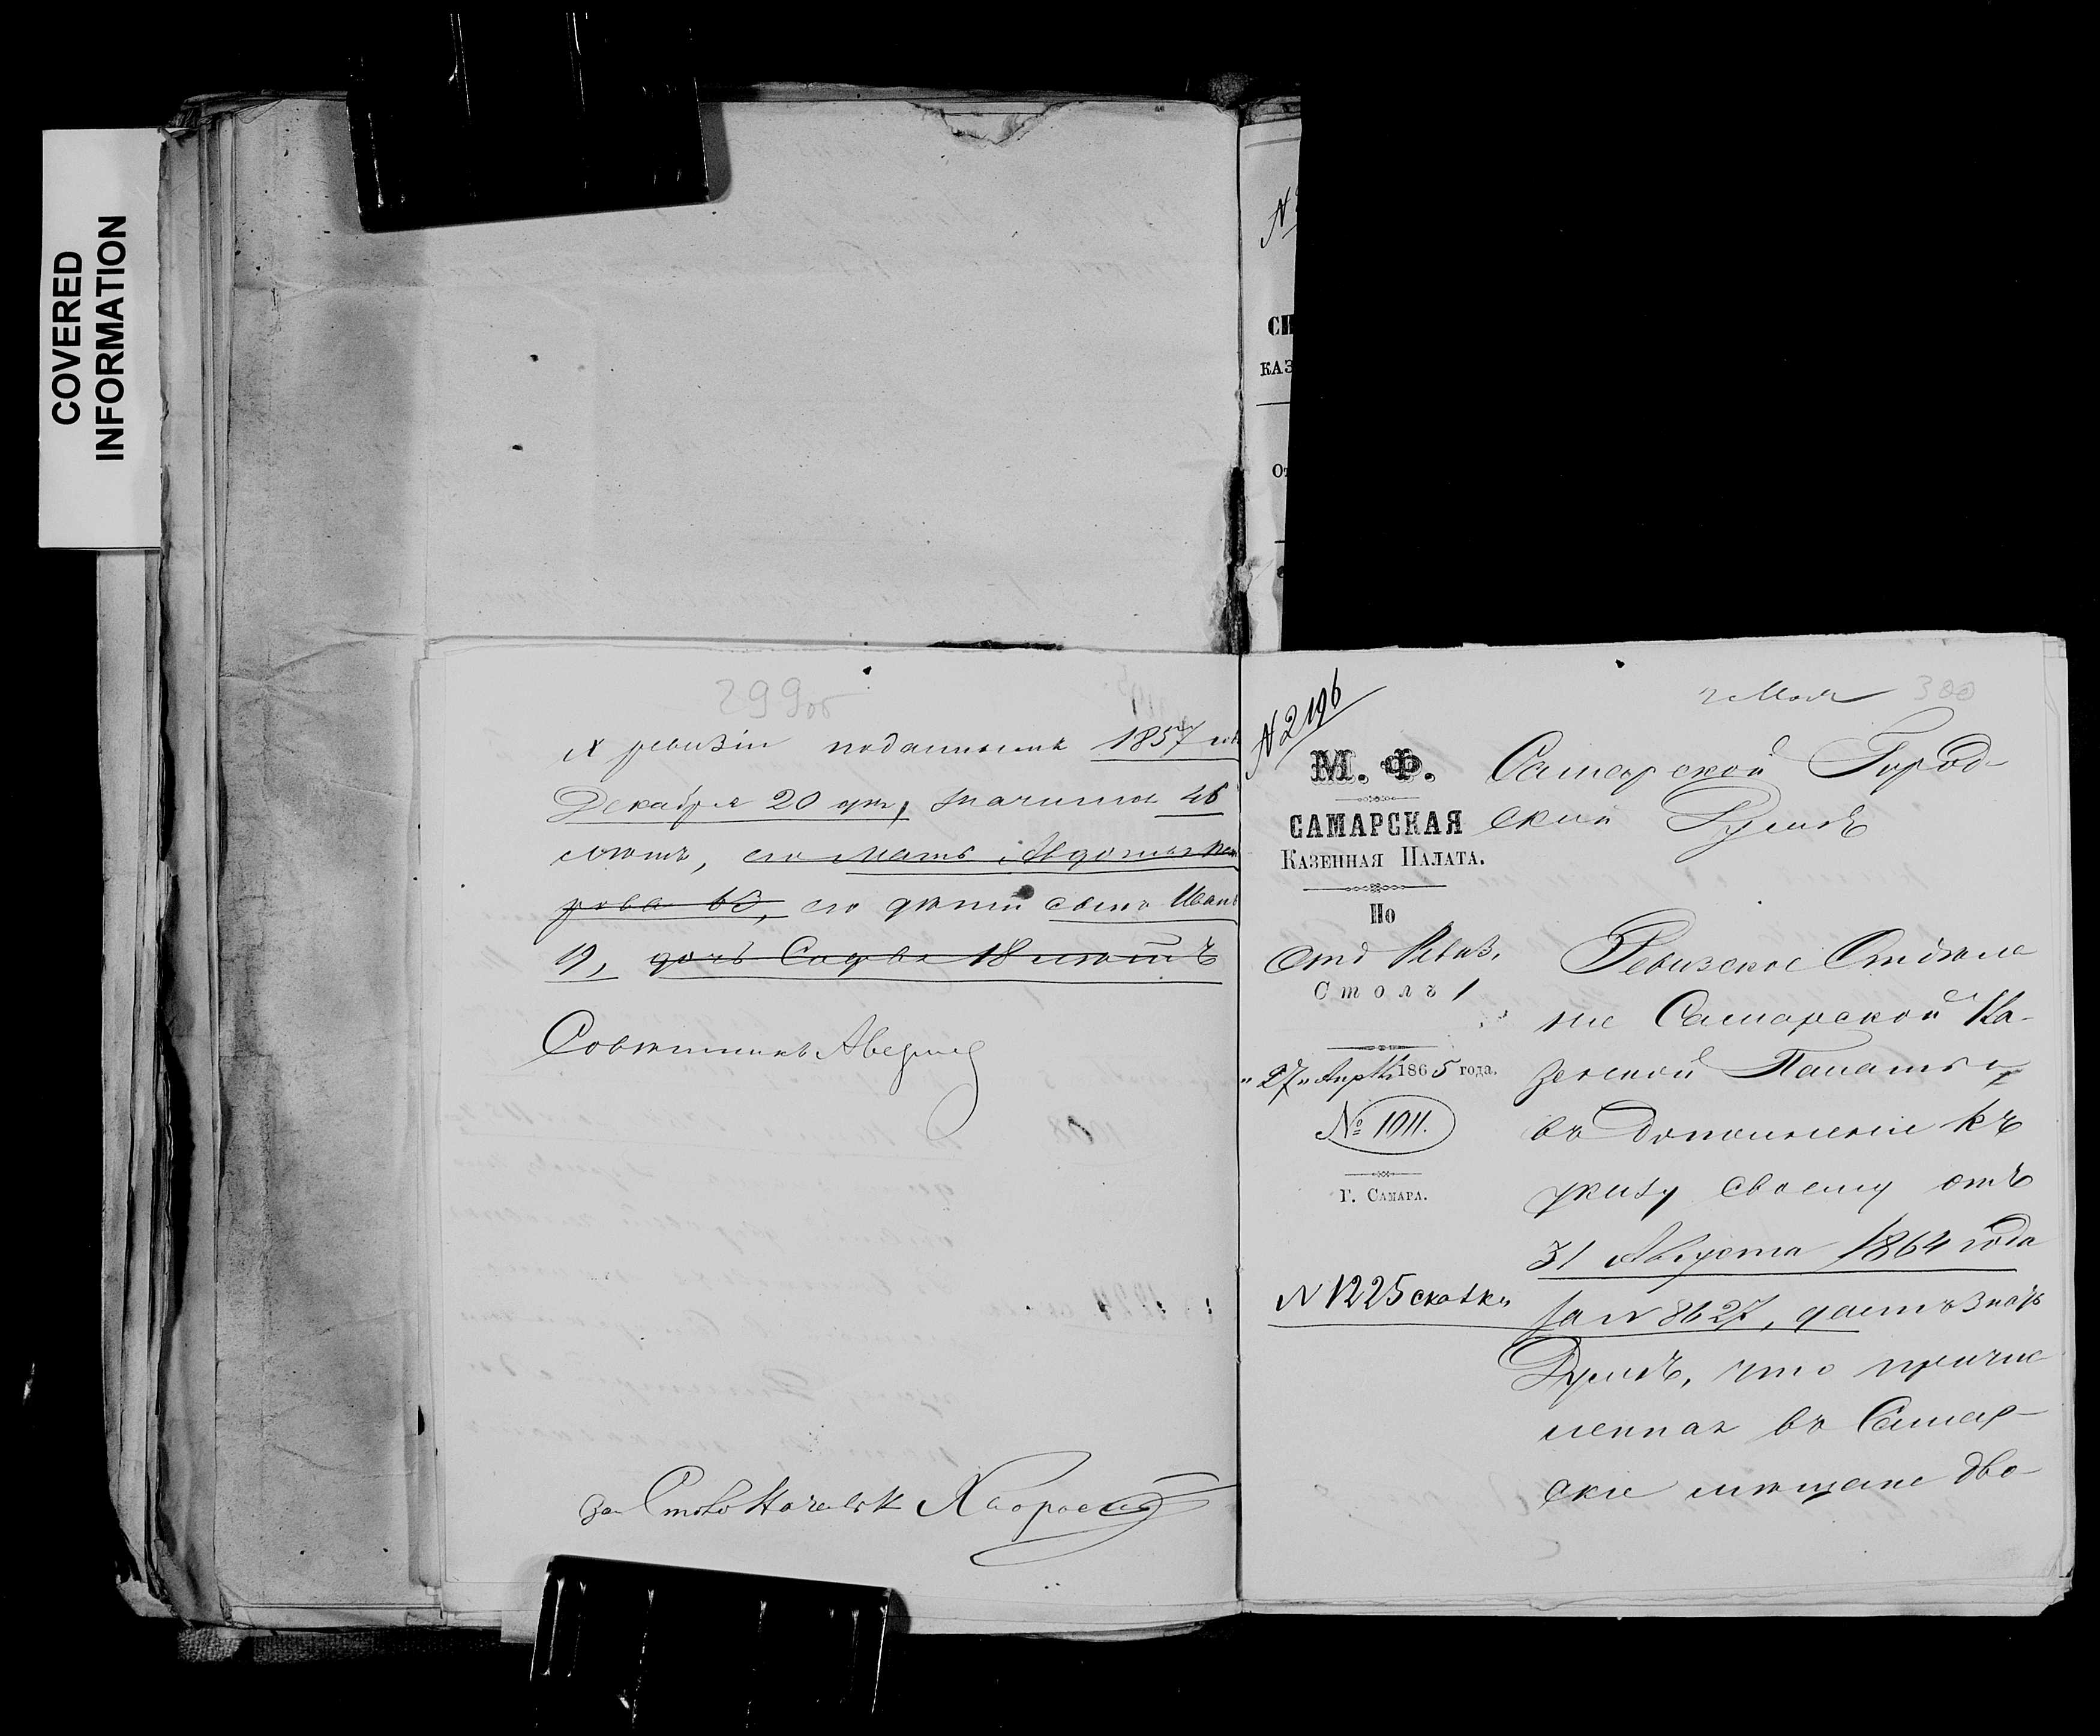 COVERED
INFORMATION
299об
X ревизіи поданныхъ 1857 год
Декабря 20 дня, значится 46
лѣтъ, его мать Авдотья
рова 63, его дѣти сынъ Иванъ
19, дочь Софья 18 лѣтъ
Совѣтникъ
За Столоначальн
N
СИ
КАЗ
От
Мая 300
N 2196
М. Ф.
САМАРСКАЯ
КАЗЕННАЯ ПАЛАТА.
По
Отд Ревиз.
Столъ 1
„27„ Апрѣл 1865 года.
№ 1011.
Г. САМАРА.
N 1225 скотки
Самарской Город-
ской Думѣ
Ревизское Отдѣле
ніе Самарской Ка-
зенной Палаты
въ дополненіе къ
указу своему отъ
31 Августа 1864 года
за N 8627, даетъ знать
Думѣ, что причис
ленная въ Самар-
скіе мѣщане дво-